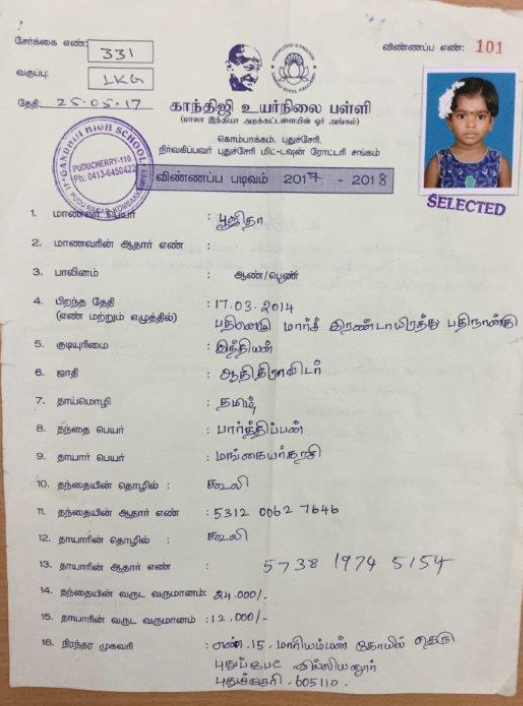 சேர்க்கை எண்: 331
விண்ணப்ப எண்: 101
வகுப்பு: LKG
தேதி: 25.05.17
காந்திஜி உயர்நிலை பள்ளி
(மாலா இந்தியா அறக்கட்டளையின் ஓர் அங்கம்)
கொம்பாக்கம், புதுச்சேரி.
நிர்வகிப்பவர் புதுச்சேரி மிட்-டவுன் ரோட்டரி சங்கம்
GANDHIJI HIGH SCHOOL
PUDUCHERRY-110.
Ph: 0413-6450422
விண்ணப்ப படிவம் 2017 - 2018
SELECTED
1. மாணவர் பெயர் : பூஜிதா
2. மாணவரின் ஆதார் எண் :
3. பாலினம் : ஆண்/பெண்
4. பிறந்த தேதி : 17.03.2014
(எண் மற்றும் எழுத்தில்) பதினேழு மார்ச் இரண்டாயிரத்து பதிநான்கு
5. குடியுரிமை : இந்தியன்
6. ஜாதி : ஆதிதிராவிடர்
7. தாய்மொழி : தமிழ்
8. தந்தை பெயர் : பார்த்திப்பன்
9. தாயார் பெயர் : மங்கையர்கரசி
10. தந்தையின் தொழில் : கூலி
11. தந்தையின் ஆதார் எண் : 5312 0062 7646
12. தாயாரின் தொழில் : கூலி
13. தாயாரின் ஆதார் எண் : 5738 1974 5154
14. தந்தையின் வருட வருமானம்: 24.000/-
15. தாயாரின் வருட வருமானம் : 12.000/-
16. நிரந்தர முகவரி : எண்.15, மாரியம்மன் கோயில் தெரு
புதுப்பேட் வில்லியனூர்
புதுச்சேரி.605110.